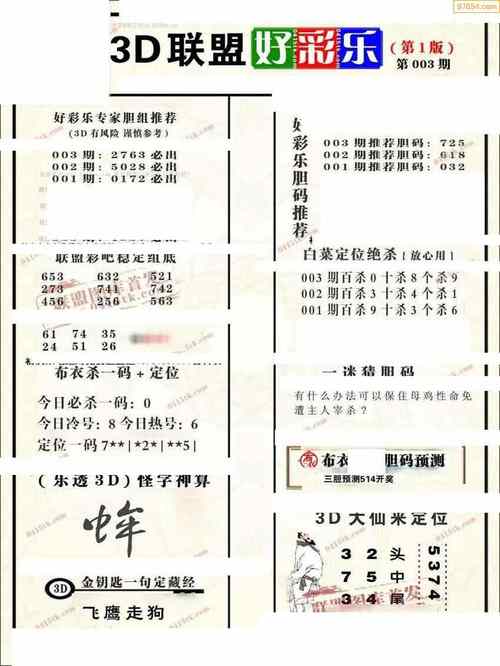 97654.com
3D联盟好彩乐
（第1版）
第003期
好彩乐专家胆组推荐
(3D有风险 谨慎参考)
003期：2763必出
002期：5028必出
001期：0172必出
联盟彩吧稳定组底
653 632 521
273 741 742
456 256 563
61 74 35
24 51 26
布衣杀一码+定位
今日必杀一码：0
今日冷号：8今日热号：6
定位一码7**|*2*|**5|
(乐透3D)怪字神算
3D 金钥匙一句定藏经
飞鹰走狗
好彩乐胆码推荐
003期推荐胆码：725
002期推荐胆码：618
001期推荐胆码：032
白菜定位绝杀[放心用]
003期百杀0十杀8个杀9
002期百杀3十杀4个杀1
001期百杀9十杀3个杀6
一谜猜胆码
有什么办法可以保住母鸡性命免
遭主人宰杀？
布衣 胆码预测
三胆预测514开奖
3D大仙米定位
3 2 头
7 5 中
3 4 尾
5374